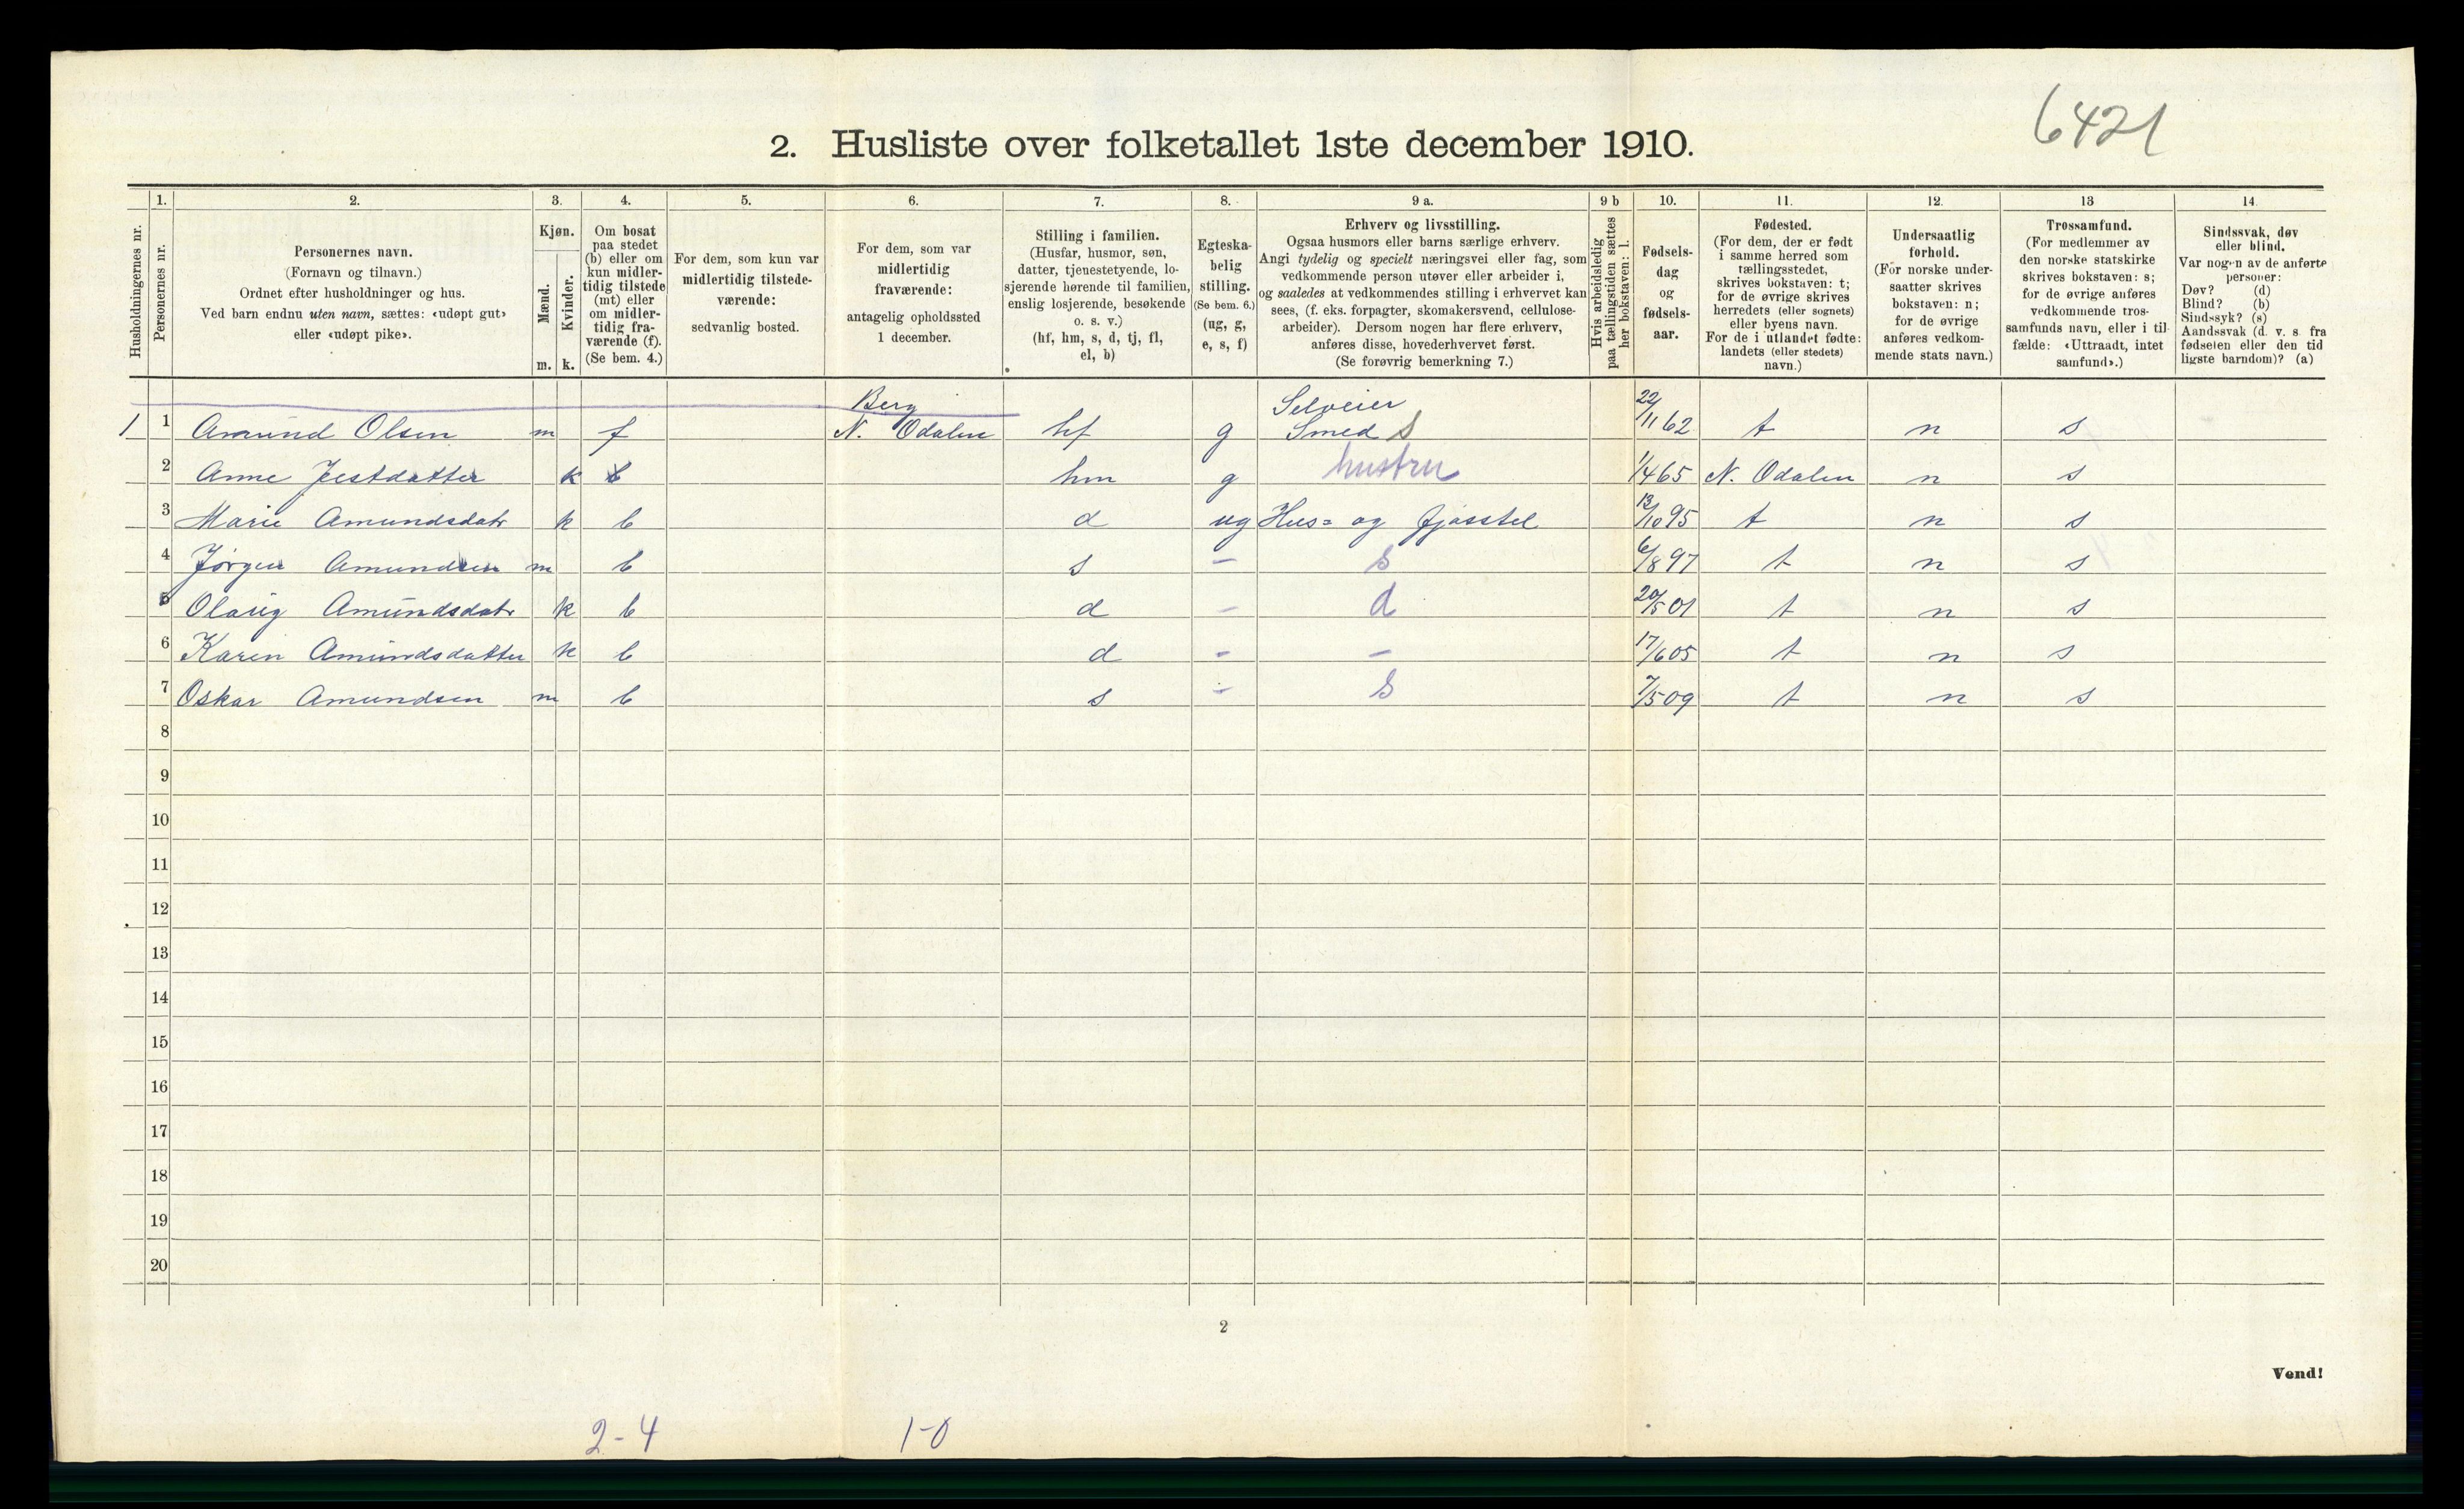 6421
2. Husliste over folketallet 1ste december 1910.
Husholdningernes nr.
1. Personernes nr.
2. Personernes navn.
(Fornavn og tilnavn.)
Ordnet efter husholdninger og hus.
Ved barn endnu uten navn, sættes: «udøpt gut»
eller «udøpt pike».
3. Kjøn.
Mænd. m.
Kvinder. k.
4. Om bosat
paa stedet
(b) eller om
kun midler-
tidig tilstede
(mt) eller
om midler-
tidig fra-
værende (f).
(Se bem. 4.)
5. For dem, som kun var
midlertidig tilstede-
værende:
sedvanlig bosted.
6. For dem, som var
midlertidig
fraværende:
antagelig opholdssted
1 december.
7. Stilling i familien.
(Husfar, husmor, søn,
datter, tjenestetyende, lo-
sjerende hørende til familien,
enslig losjerende, besøkende
o. s. v.)
(hf, hm, s, d, tj, fl,
el, b)
8. Egteska-
belig
stilling.
(Se bem. 6.)
(ug, g,
e, s, f)
9 a. Erhverv og livsstilling.
Ogsaa husmors eller barns særlige erhverv.
Angi tydelig og specielt næringsvei eller fag, som
vedkommende person utøver eller arbeider i,
og saaledes at vedkommendes stilling i erhvervet kan
sees, (f. eks. forpagter, skomakersvend, cellulose-
arbeider). Dersom nogen har flere erhverv,
anføres disse, hovederhvervet først.
(Se forøvrig bemerkning 7.)
9 b Hvis arbeidsledig
paa tællingstiden sættes
her bokstaven: l.
10. Fødsels-
dag
og
fødsels-
aar.
11. Fødested.
(For dem, der er født
i samme herred som
tællingsstedet,
skrives bokstaven: t;
for de øvrige skrives
herredets (eller sognets)
eller byens navn.
For de i utlandet fødte:
landets (eller stedets)
navn.)
12. Undersaatlig
forhold.
(For norske under-
saatter skrives
bokstaven: n;
for de øvrige
anføres vedkom-
mende stats navn.)
13 Trossamfund.
(For medlemmer av
den norske statskirke
skrives bokstaven: s;
for de øvrige anføres
vedkommende tros-
samfunds navn, eller i til-
fælde: «Uttraadt, intet
samfund».)
14. Sindssvak, døv
eller blind.
Var nogen av de anførte
personer:
Døv? (d)
Blind? (b)
Sindssyk? (s)
Aandssvak (d. v. s. fra
fødselen eller den tid
ligste barndom)? (a)
Berg Selveier
1 1 Amund Olsen m f N. Odalen hf g Smed S 22/11 62 t n s
2 Anne Jestdatter k b hm g hustru 1/4 65 N. Odalen n s
3 Marie Amundsdatr k b d ug Hus= og fjøsstel 13/10 95 t n s
4 Jørgen Amundsen m b s - s 6/8 97 t n s
5 Olaug Amundsdatr k b d - d 20/5 01 t n s
6 Karen Amundsdatter k b d - - 17/6 05 t n s
7 Oskar Amundsen m b s - s 7/5 09 t n s
8
9
10
11
12
13
14
15
16
17
18
19
20
2
Vend!
2-4 1-0